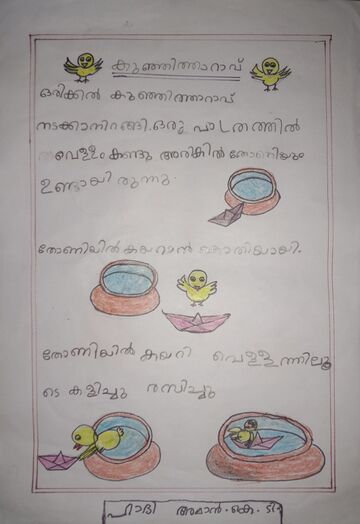 കുഞ്ഞിത്താറാവ്
ഒരിക്കൽ കുഞ്ഞിത്താറാവ്
നടക്കാനിറങ്ങി. ഒരു പാത്രത്തിൽ
വെള്ളം കണ്ടു അരികിൽ തോണിയും
ഉണ്ടായിരുന്നു.
തോണിയിൽ കയറാൻ കൊതിയായി.
തോണിയിൽ കയറി വെള്ളത്തിലൂ
ടെ കളിച്ചു രസിച്ചു
ഹാദി അമാൻ.കെ.ടി